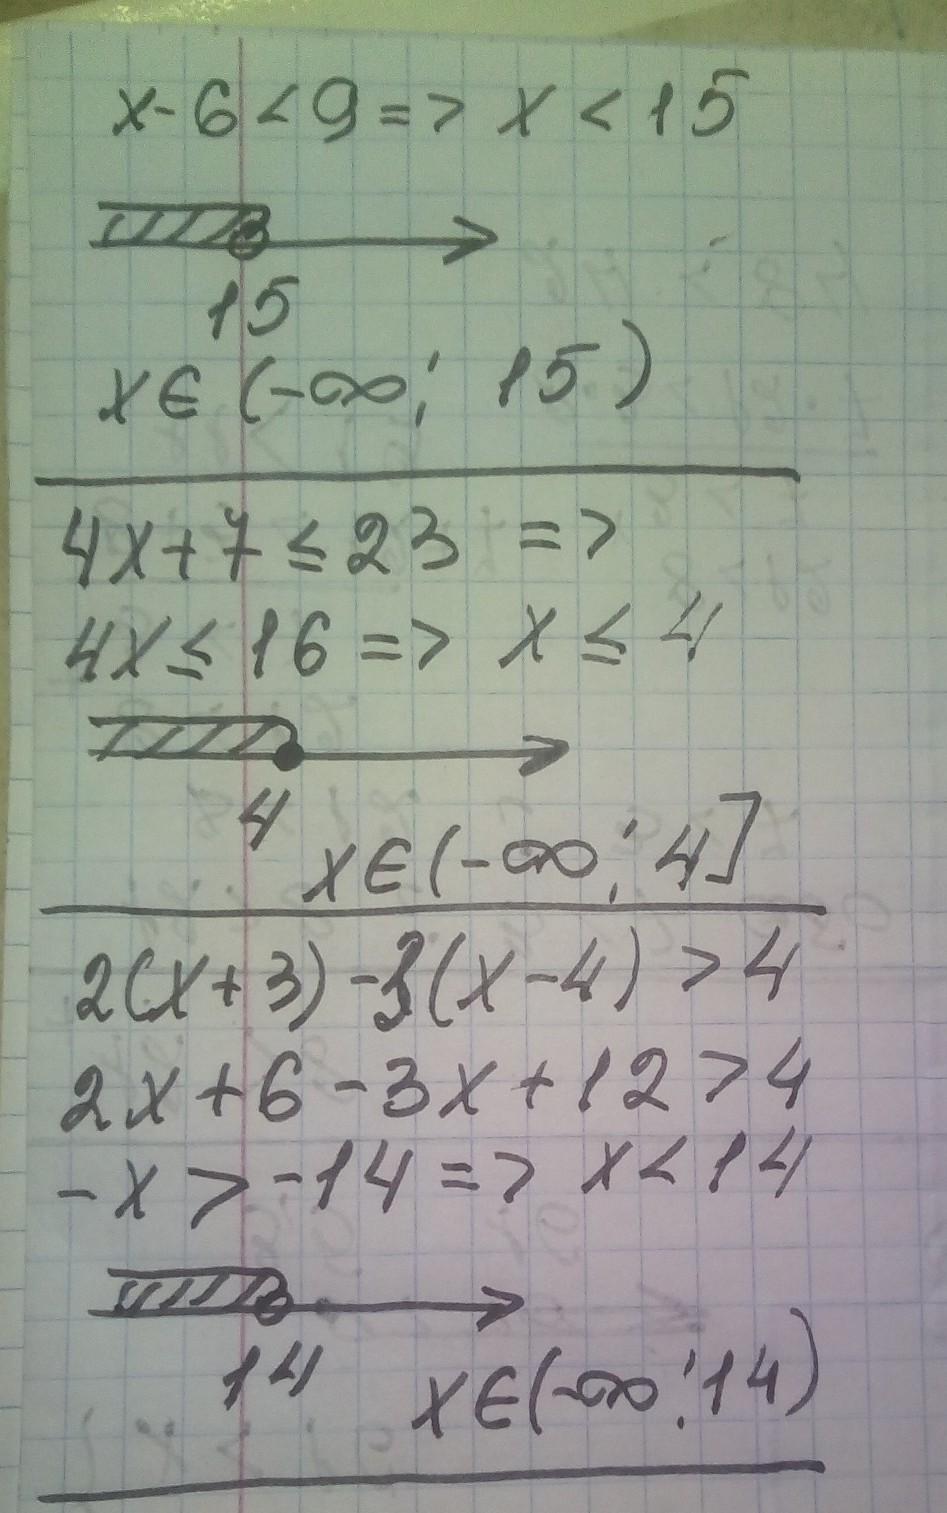 x-6<9=> x<15
15
x∈(-∞; 15)
4x+7≤23 =>
4x≤16=> x≤4
4
x∈(-∞; 4]
2(x+3)-3(x-4)>4
2x+6-3x+12>4
-x>-14=> x<14
14
x∈(-∞;14)